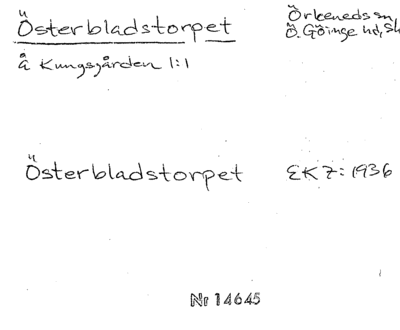 Österbladstorpet
Örkeneds sn,
Ö. Göinge hd, Sk
å Kungsgården 1:1
Österbladstorpet EK 7: 1936
Nr 14645